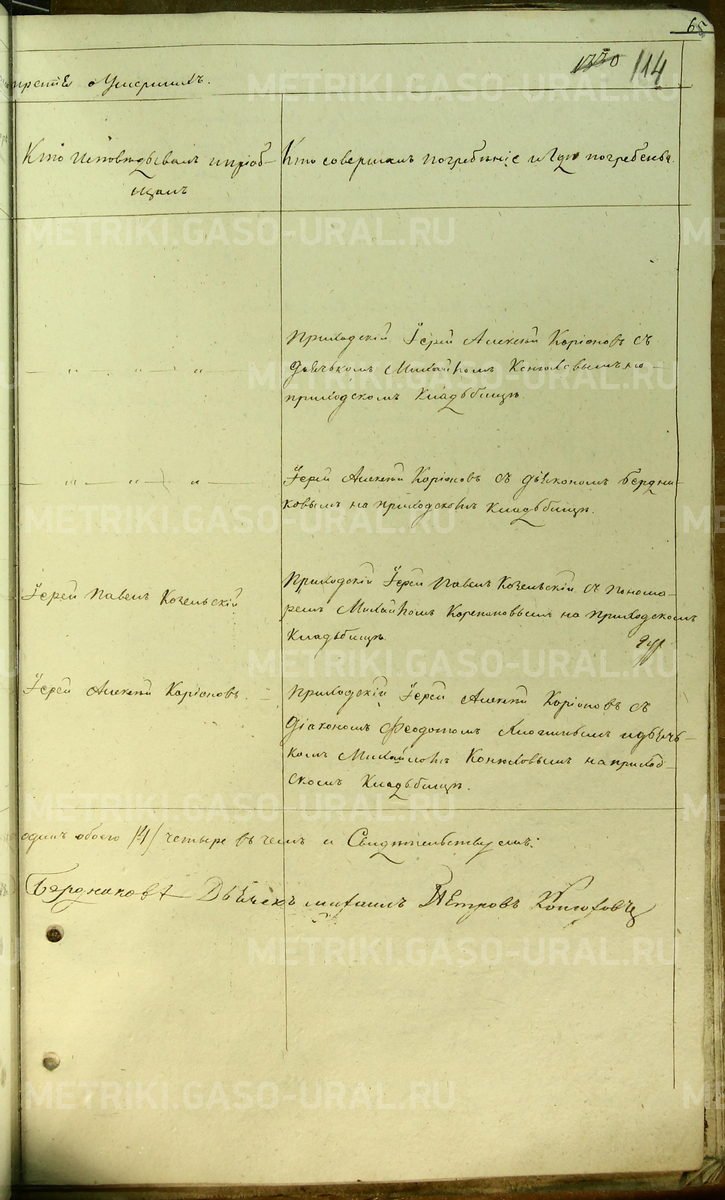 65
1770 114
третья о Умершихъ.
Кто исповѣдывалъ и пріоб-
щалъ
Кто совершалъ погребеніе и гдѣ погребены.
Приходскій Іерей Алексѣй Каріоновъ съ
дьячькомъ Михайломъ Конюховымъ на
приходскомъ кладьбищѣ.
Іерей Алексѣй Каріоновъ съ діякономъ Бердни-
ковымъ на приходскомъ кладьбищѣ.
Іерей Павелъ Козельскій
Приходскій Іерей Павелъ Козельскій съ понома-
ремъ Михайломъ на приходскомъ
кладьбищѣ.
Іерей Алексѣй Каріоновъ.
Приходскій Іерей Алексѣй Каріоновъ съ
діакономъ Феодотомъ и дьячь-
комъ Михайломъ Конюховымъ на приход-
скомъ кладьбищѣ.
одинъ обоего /4/ четыре въ чемъ и Свидѣтельствуемъ:
Бердниковъ Дьячекъ михаилъ Петровъ Конюховъ
METRIKI.GASO-URAL.RU